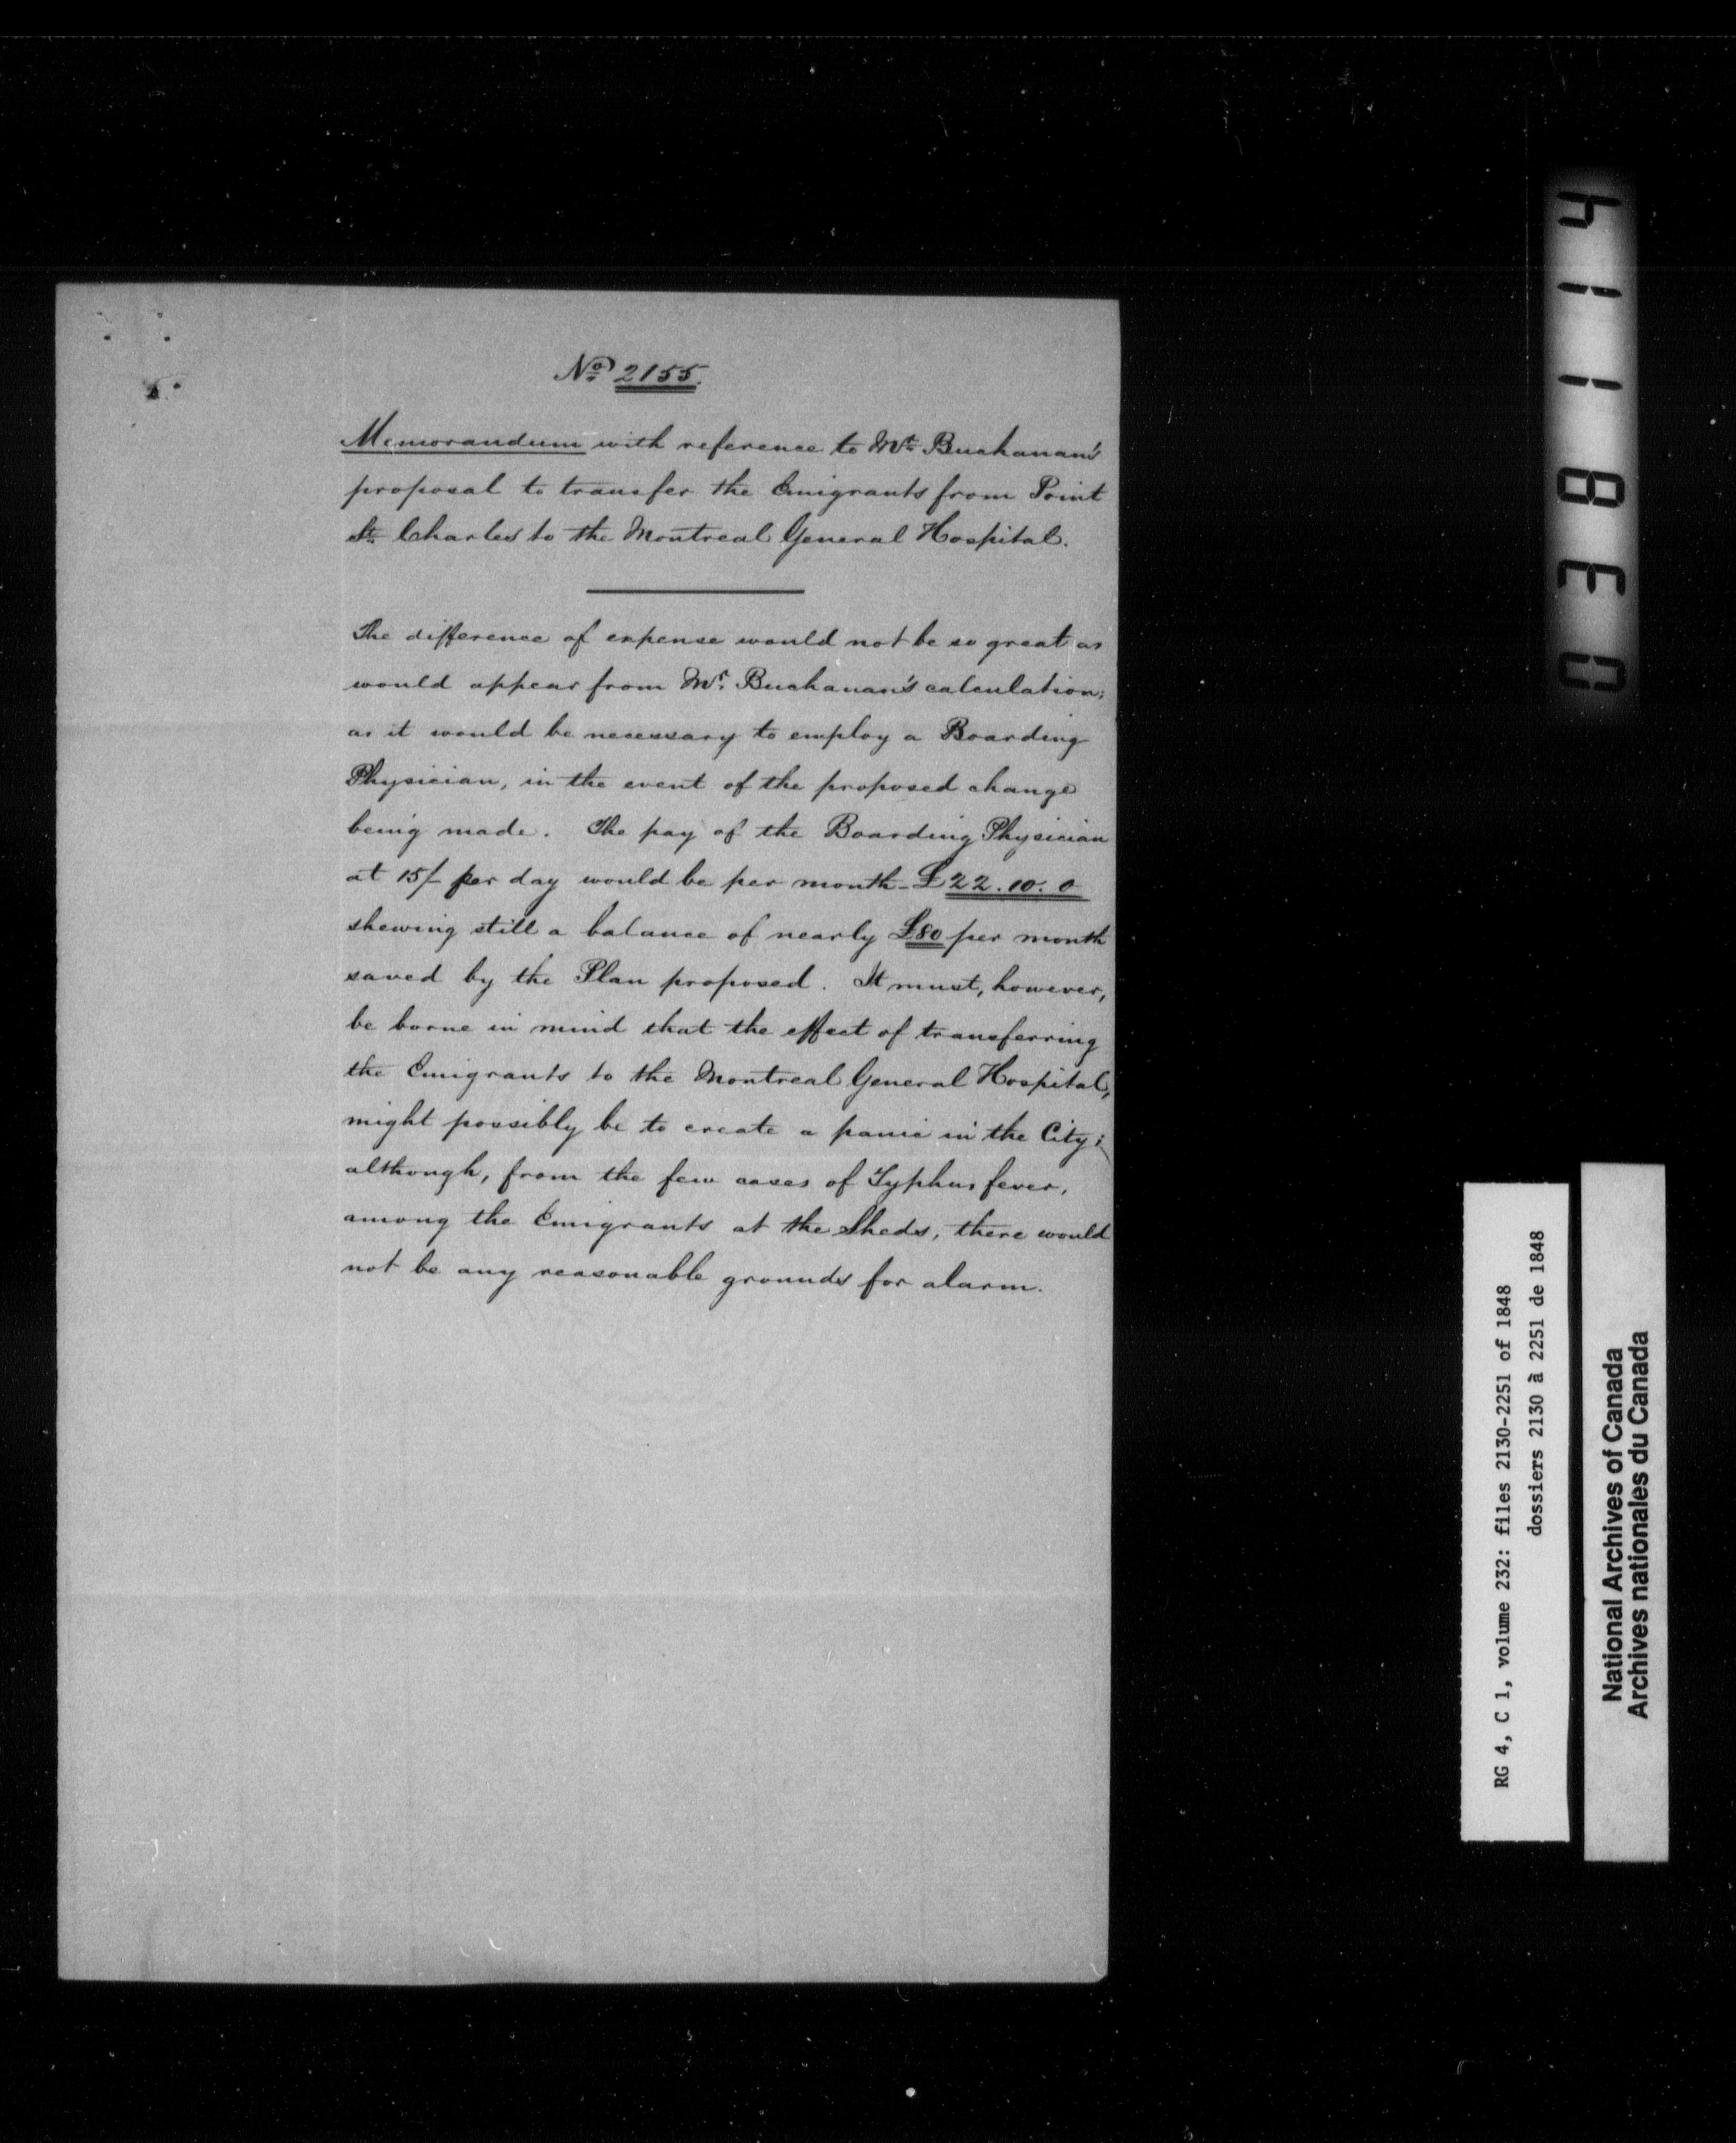 No 2155.
Memorandum with reference to Mr. Buchanan's
proposal to transfer the Emigrants from Point
St. Charles to the Montreal General Hospital.
The difference of expense would not be so great as
would appear from Mr. Buchanan's calculation;
as it would be necessary to employ a Boarding
Physician, in the event of the proposed change
being made. The pay of the Boarding Physician
at 15/- per day would be per month - £22.10.0
shewing still a balance of nearly £80 per month
saved by the Plan proposed. It must, however,
be borne in mind that the effect of transferring
the Emigrants to the Montreal General Hospital,
might possibly be to create a panic in the City;
although, from the few cases of Typhus fever,
among the Emigrants at the Sheds, there would
not be any reasonable grounds for alarm.
038114
RG 4, C 1, volume 232: files 2130-2251 of 1848
dossiers 2130 à 2251 de 1848
National Archives of Canada
Archives nationales du Canada